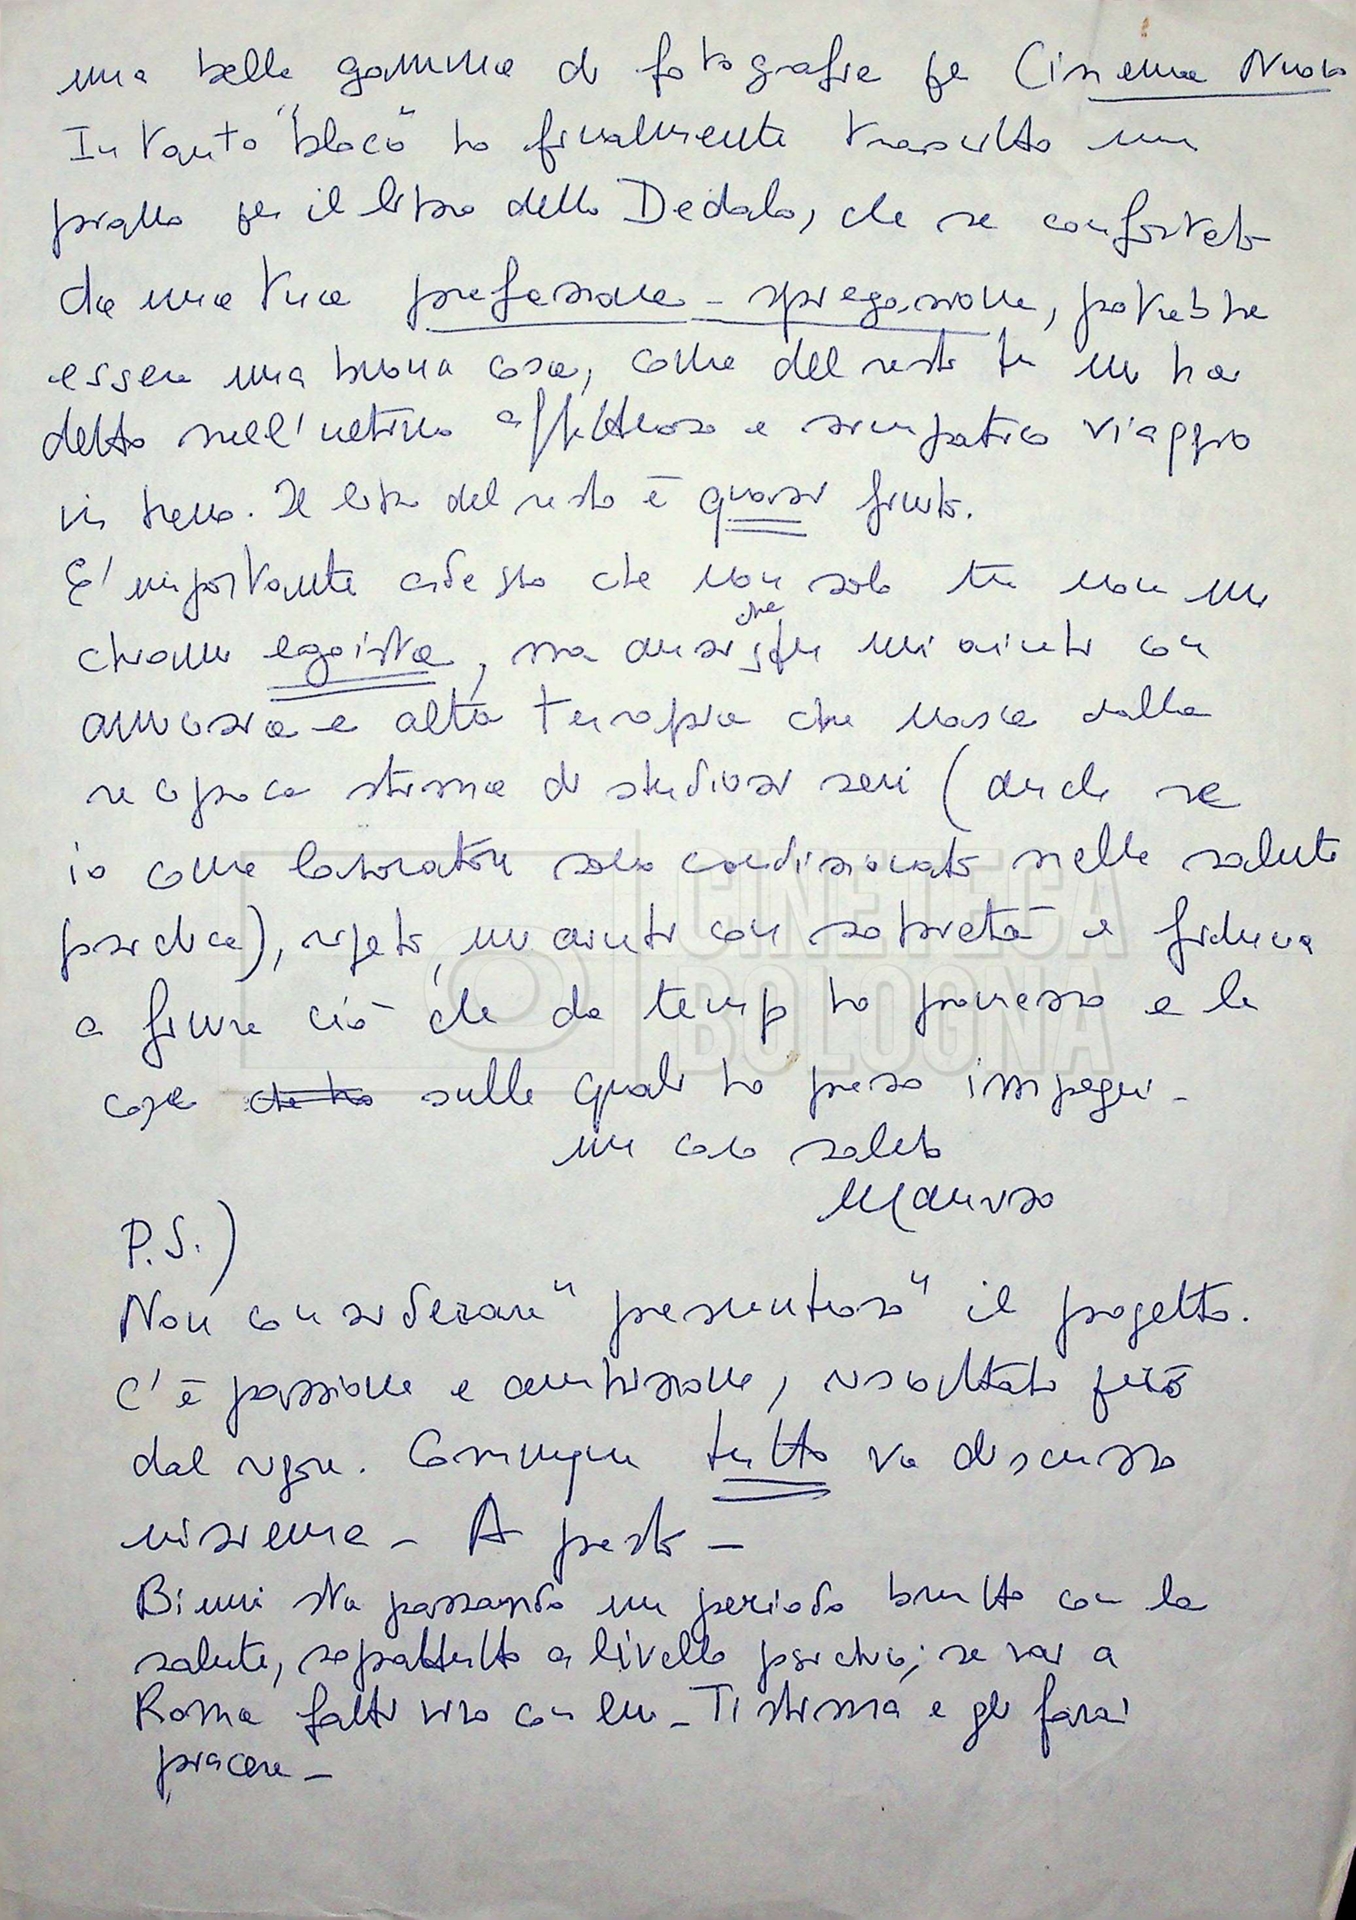 una bella gamma di fotografie per Cinema Nuovo
Intanto "bloco" ho finalmente trascritto un
per il libro della Dedalo, che se confortato
da una tua prefazione - spiegazione, potrebbe
essere una buona cosa, come del resto tu mi hai
detto nell'ultimo affettuoso e simpatico viaggio
in treno. Il libro del resto è quasi finito.
E' importante adesso che non solo tu non mi
chiami egoista, ma anzi che tu mi aiuti con
amicizia e alta terapia che nasce dalla
reciproca stima di studiosi seri (anche se
io come lavoratore sono condizionato nella salute
psichica), ripeto, mi aiuti con sobrietà e fiducia
a finire ciò che da tempo ho promesso e le
cose che ho sulle quali ho preso impegni -
un caro saluto
Maurizio
P.S.)
Non considerare "presuntuoso" il progetto.
C'è passione e ambizione, riscattato però
dal rigore. Comunque tutto va discusso
insieme - A presto -
Bimmi sta passando un periodo brutto con la
salute, soprattutto a livello psichico; se vai a
Roma fatti vivo con lui - Ti stima e gli farai
piacere -
CINETECA
BOLOGNA